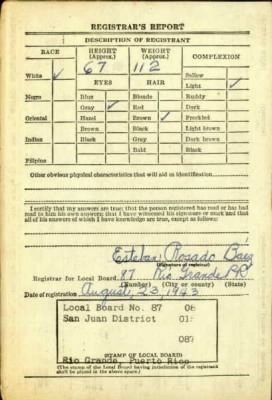 REGISTRAR'S REPORT
DESCRIPTION OF REGISTRANT
RACE HEIGHT (Approx.) WEIGHT (Approx.) COMPLEXION
67 112
White ✓ EYES HAIR Sallow
Light ✓
Negro Blue Blonde Ruddy
Gray ✓ Red Dark
Oriental Hazel Brown ✓ Freckled
Brown Black Light brown
Indian Black Gray Dark brown
Bald Black
Filipino
Other obvious physical characteristics that will aid in identification
I certify that my answers are true; that the person registered has read or has had
read to him his own answers; that I have witnessed his signature or mark and that
all of his answers of which I have knowledge are true, except as follows:
Esteban Rosado Baez
(Signature of registrar)
Registrar for Local Board 87 Rio Grande P.R.
(Number) (City or county) (State)
Date of registration August, 23, 1943
Local Board No. 87 06
San Juan District 01
087
Rio Grande, Puerto Rico
STAMP OF LOCAL BOARD
(The stamp of the Local Board having jurisdiction of the registrant
shall be placed in the above space.)